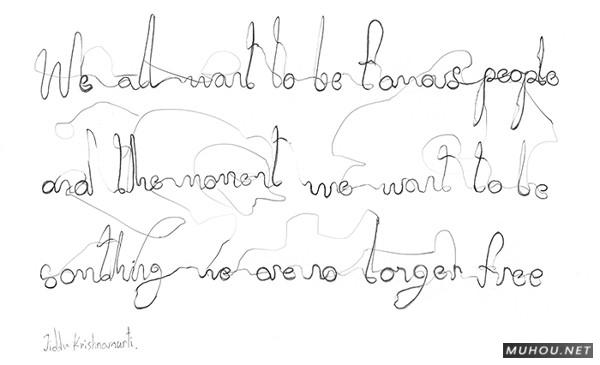 We all want to be famous people
and the moment we want to be
something we are no longer free
Jiddu Krishnamurti.
MUHOU.NET